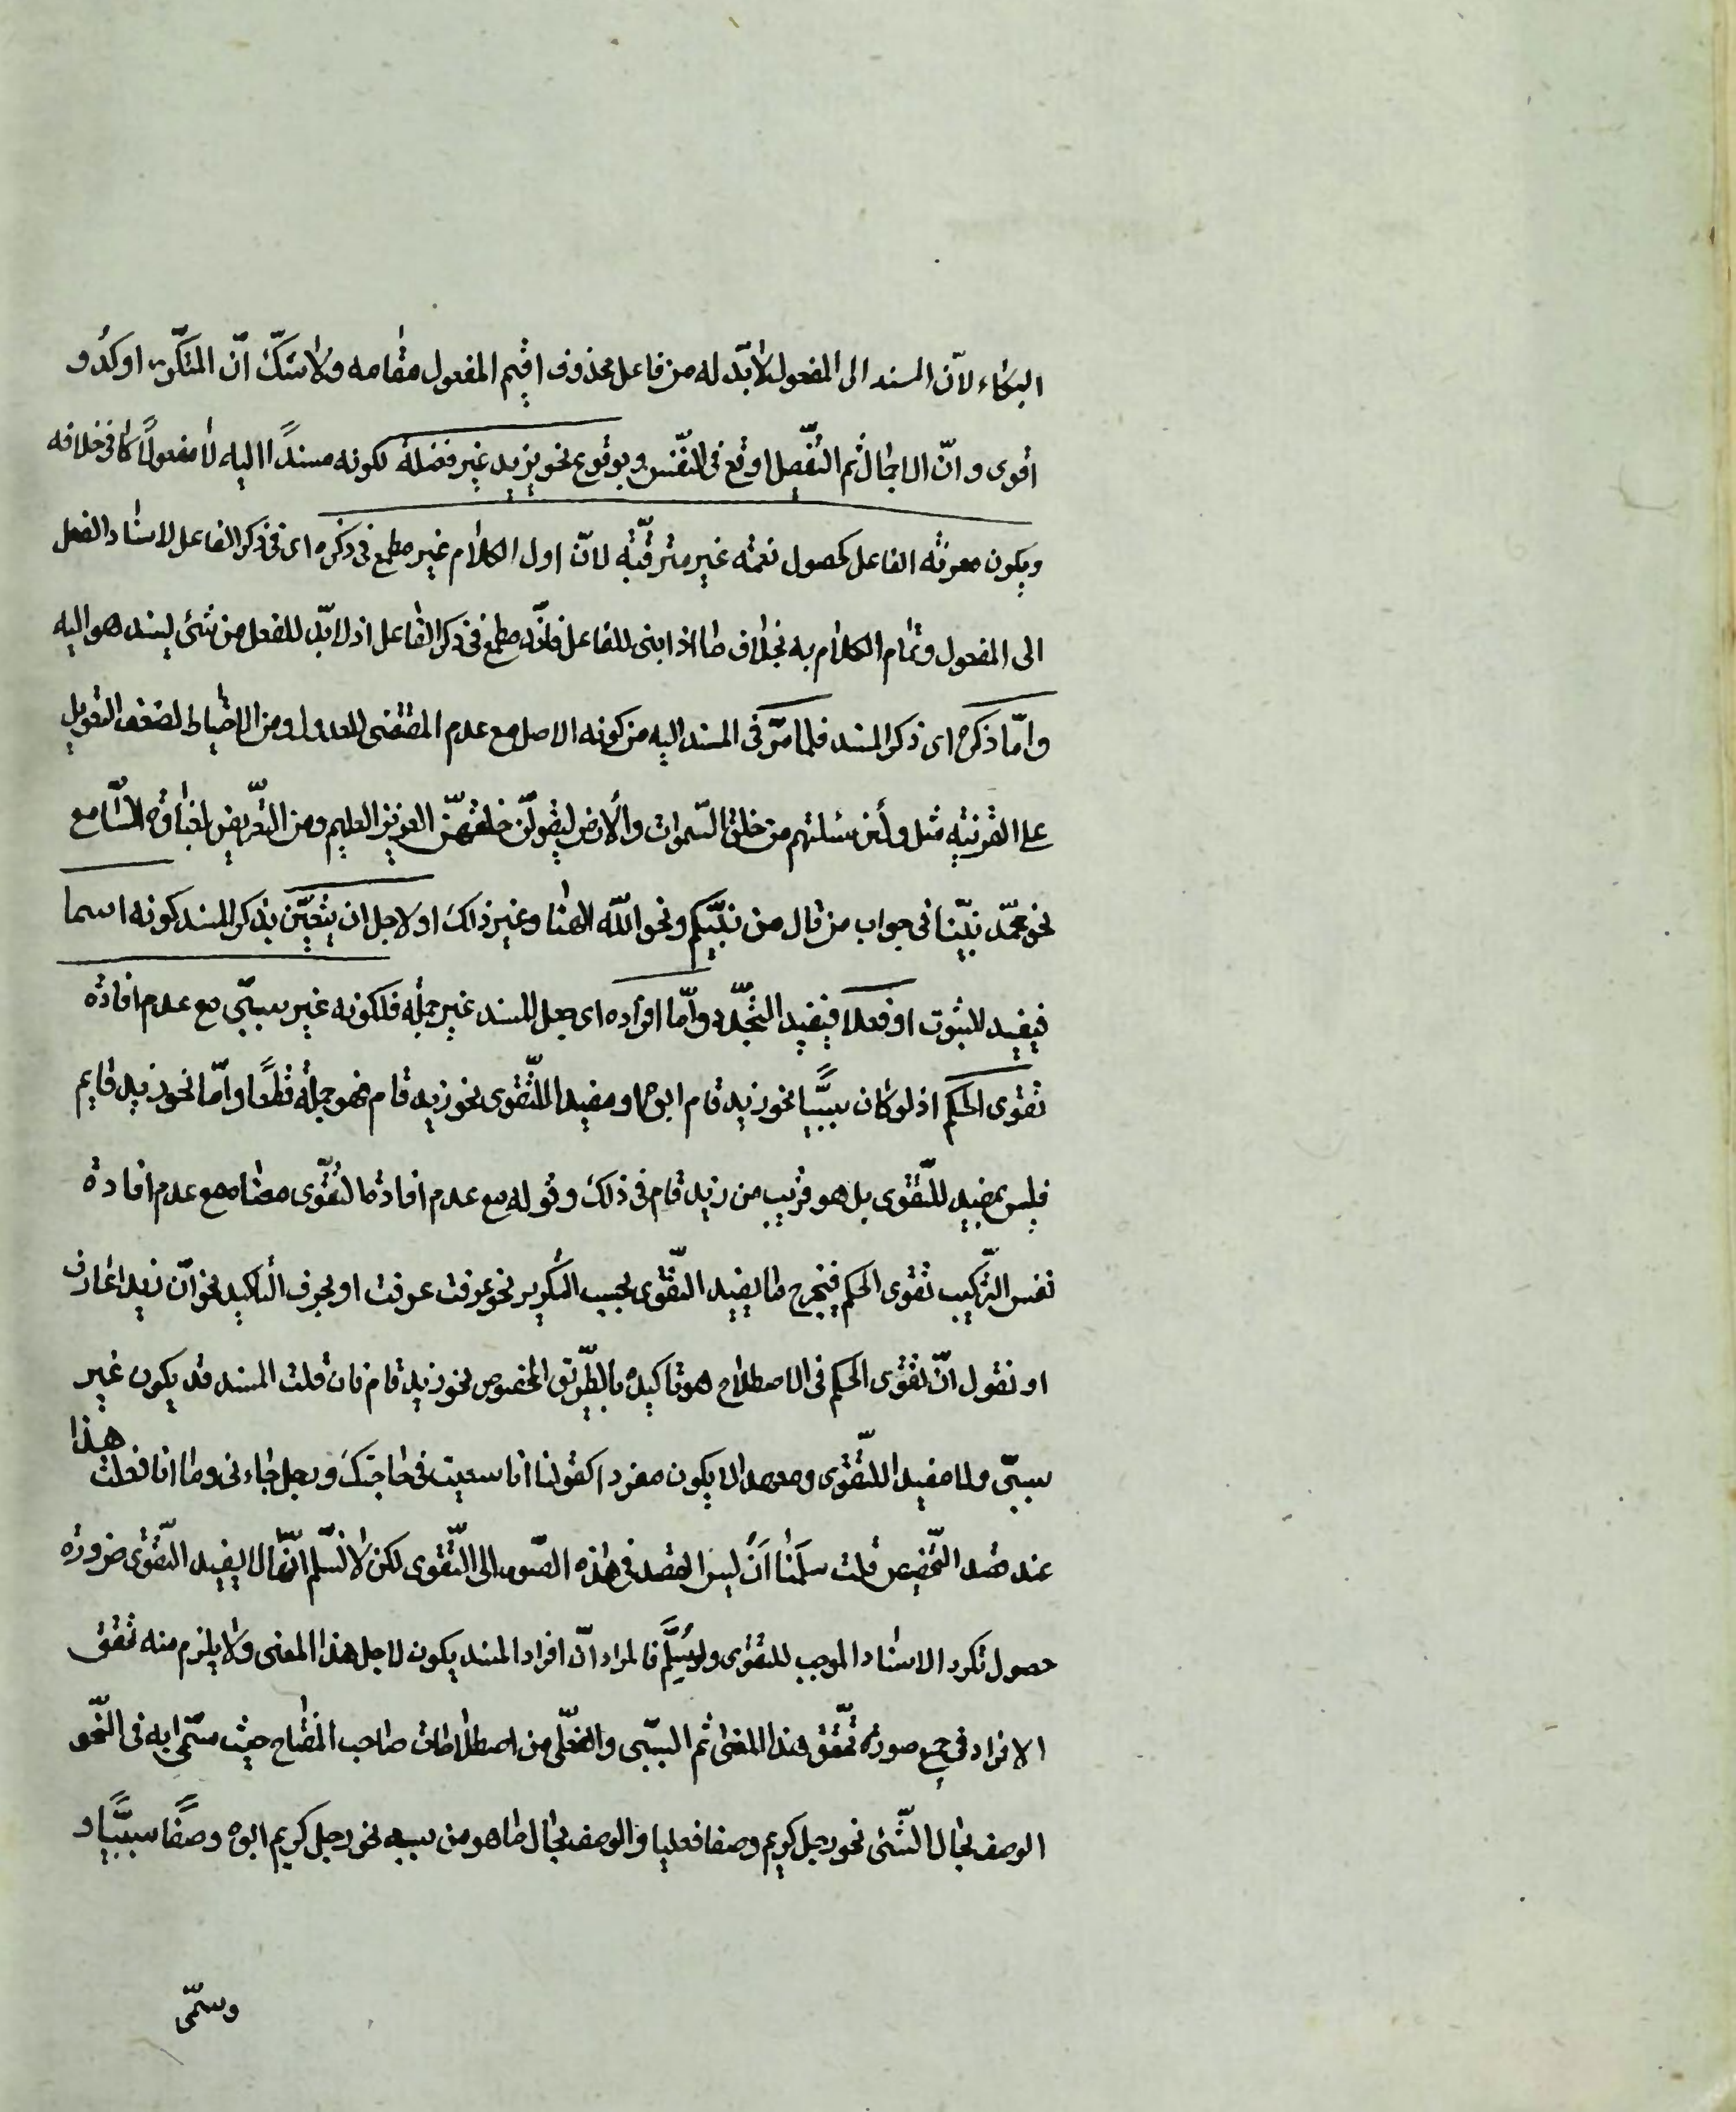 البكاء لانّ المسند الى المفعول لا بدّ له من فاعل محذوف اقيم المفعول مقامه ولا شكّ انّ المتكرّر اوكد و
اقوى وانّ الاجمال ثم التّفصيل اوقع فى النّفس وبوقوع نحو يزيد غير فضلة لكونه مسنداً اليه لا مفعولاً كما فى خلافه
ويكون معرفة الفاعل كحصول نعمة غير مترقّبة لانّ اول الكلام غير مطمع فى ذكره اى فى ذكر الفاعل لاسناد الفعل
الى المفعول وتمام الكلام به بخلاف ما اذا بنى للفاعل فانّه مطمع فى ذكر الفاعل اذ لا بدّ للفعل من شئ يسند هو اليه
وامّا ذكره اى ذكر المسند فلما مرّ فى المسند اليه من كونه الاصل مع عدم المقتضى للعدول ومن الاحتياط لضعف التعويل
على القرينة مثل ولئن سئلتهم من خلق السّموات والأرض ليقولنّ خلقهنّ العزيز العليم ومن التّعريض بغباوة السّامع
نحو محمّد نبيّنا فى جواب من قال من نبيّكم ونحو اللّه الهنا وغير ذلك او لاجل ان يتعيّن بذكر المسند كونه اسما
فيفيد الثبوت او فعلا فيفيد التّجدّد وامّا افراده اى جعل المسند غير جملة فلكونه غير سببّى مع عدم افادة
تقوى الحكم اذ لو كان سببيًّا نحو زيد قام ابوه او مفيدا للتّقوى نحو زيد قام فهو جملة قطعًا وامّا نحو زيد قايم
فليس بمفيد للتّقوى بل هو قريب من زيد قام فى ذلك وقوله مع عدم افادة التقوّى معناه مع عدم افادة
نفس التّركيب تقوى الحكم فيخرج ما يفيد التقوّى بحسب التكرير نحو عرفت عرفت او بحرف التاكيد نحو انّ زيدا عارف
او نقول انّ تقوّى الحكم فى الاصطلاح هو تاكيده بالطّريق المخصوص نحو زيد قام فان قلت المسند قد يكون غير
سببّى ولا مفيدا للتّقوّى ومع هذا لا يكون مفردا كقولنا انا سعيت فى حاجتك ورجل جاءنى وما انا فعلت هذا
عند قصد التّخصيص قلت سلّمنا أنْ ليس القصد فى هذه الصّور الى التّقوى لكن لا نسلّم انّها لا يفيد التّقوّى ضرورة
حصول تكرر الاسناد الموجب للتقوّى ولو سُلِّم فالمراد انّ افراد المسند يكون لاجل هذا المعنى ولا يلزم منه تحقق
الافراد فى جميع صورة تحقّق هذا المعنى ثم السببّى والفعلّى من اصطلاحات صاحب المفتاح حيث سمّى به فى النّحو
الوصف بحال الشّئ نحو رجل كريم وصفا فعليا والوصف بحال ما هو من سببه نحو رجل كريم ابوه وصفًا سببيًّا و
وسمّى